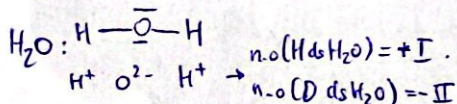 H₂O : H—O̲̅—H
H⁺ O²⁻ H⁺ → n.o(H ds H₂O) = +I.
n.o(O ds H₂O) = -II